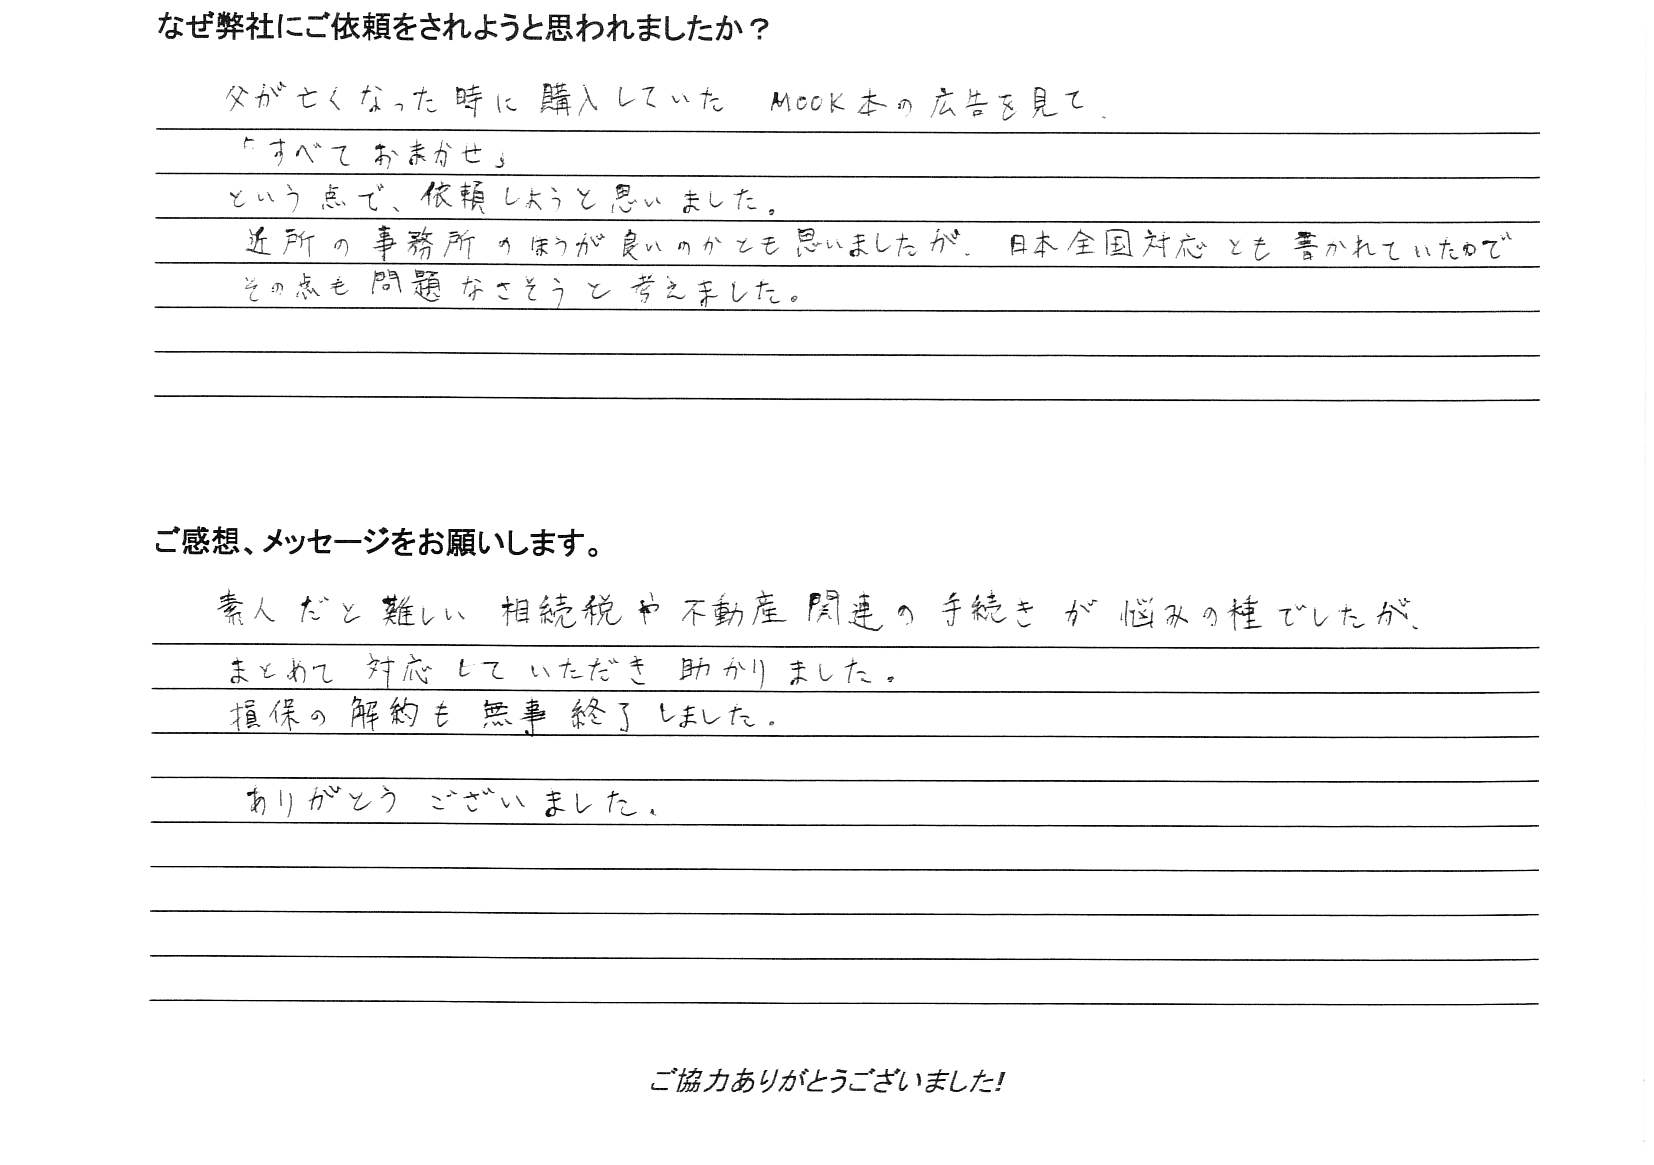 なぜ弊社にご依頼をされようと思われましたか？
父が亡くなった時に購入していた MOOK本の広告を見て、
「すべておまかせ」
という点で、依頼しようと思いました。
近所の事務所のほうが良いのかとも思いましたが、日本全国対応とも書かれていたので
その点も問題なさそうと考えました。
ご感想、メッセージをお願いします。
素人だと難しい相続税や不動産関連の手続きが悩みの種でしたが、
まとめて対応していただき助かりました。
損保の解約も無事終了しました。
ありがとうございました。
ご協力ありがとうございました!